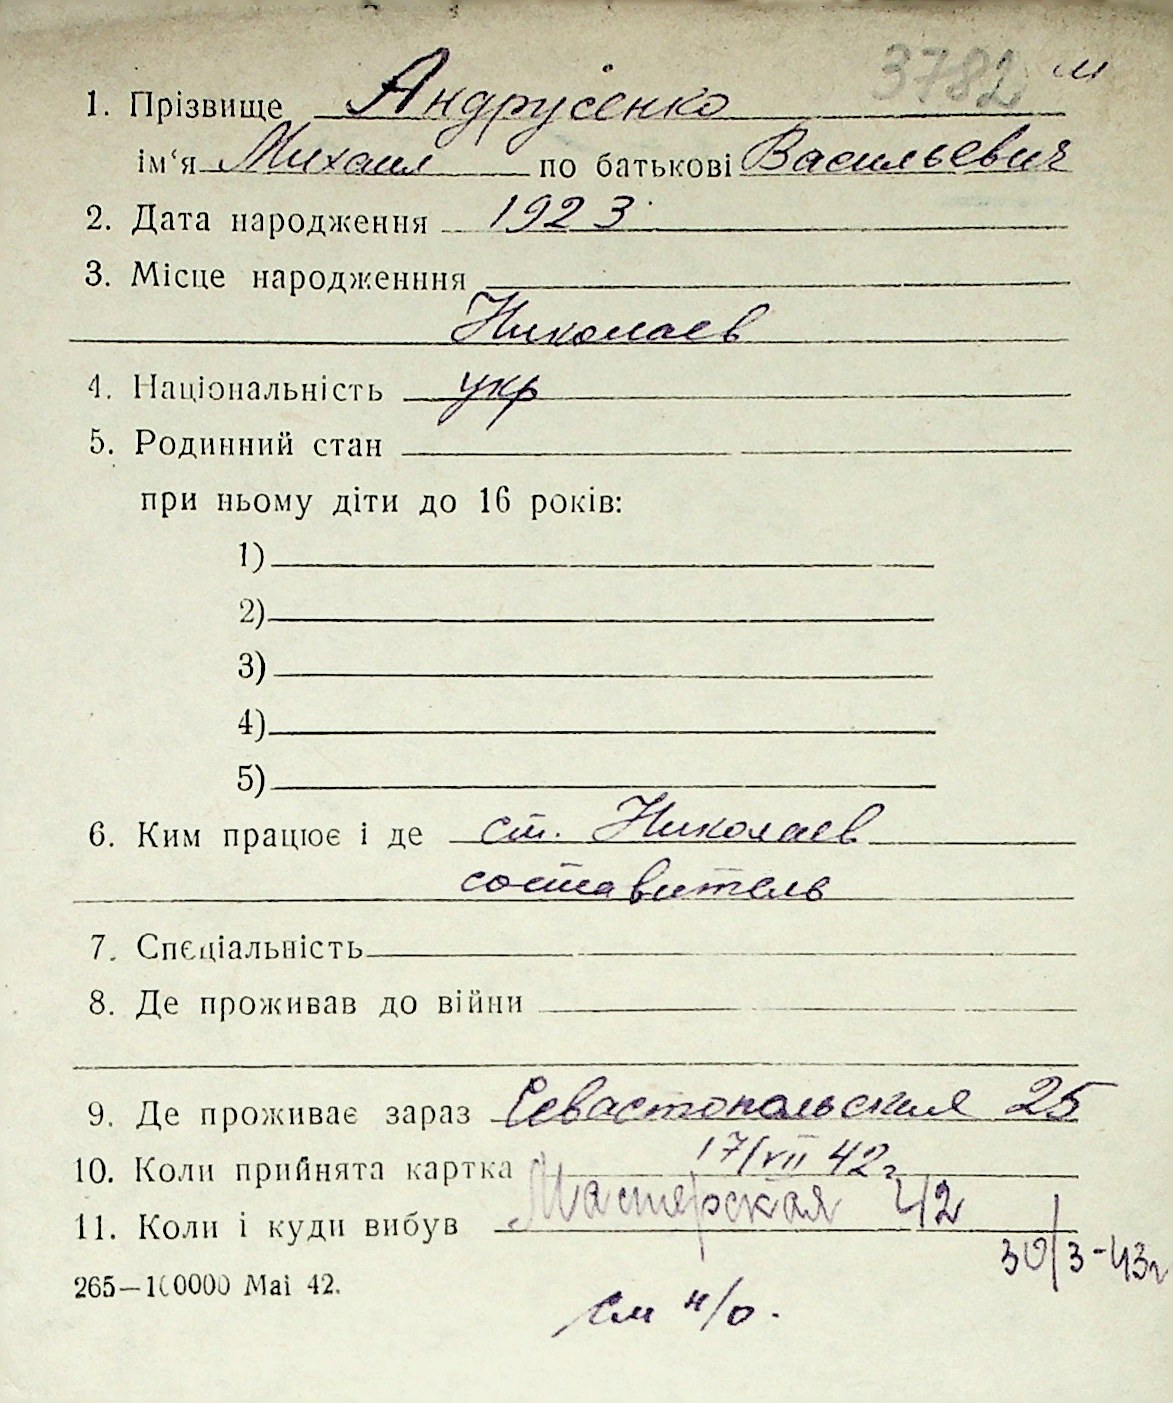 3782 м
1. Прізвище Андрусенко
ім‘я Михаил по батькові Васильевич
2. Дата народження 1923
3. Місце народженння
Николаев
4. Національність укр
5. Родинний стан
при ньому діти до 16 років:
1)
2)
3)
4)
5)
6. Ким працює і де ст. Николаев
составитель
7. Спєціальність
8. Де проживав до війни
9. Де проживає зараз Севастопольская 25
10. Коли прийнята картка 17/VII 42г
11. Коли і куди вибув Мастерская 42
30/3-43г
265—100000 Маі 42.
См н/о.